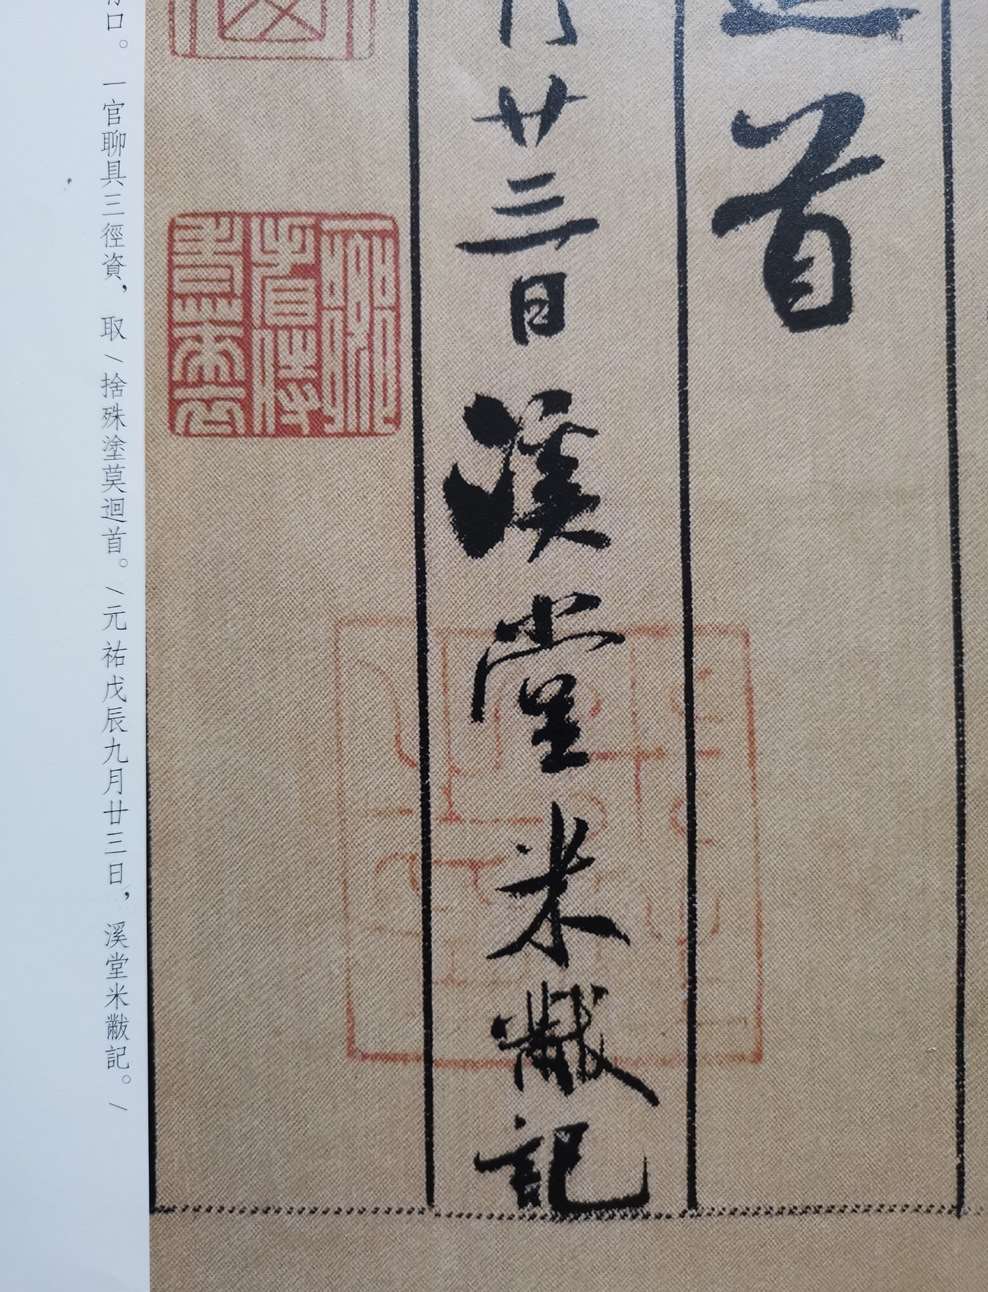 首
月廿三日溪堂米黻記
口。一官聊具三徑資，取/捨殊塗莫迴首。/元祐戊辰九月廿三日，溪堂米黻記。/